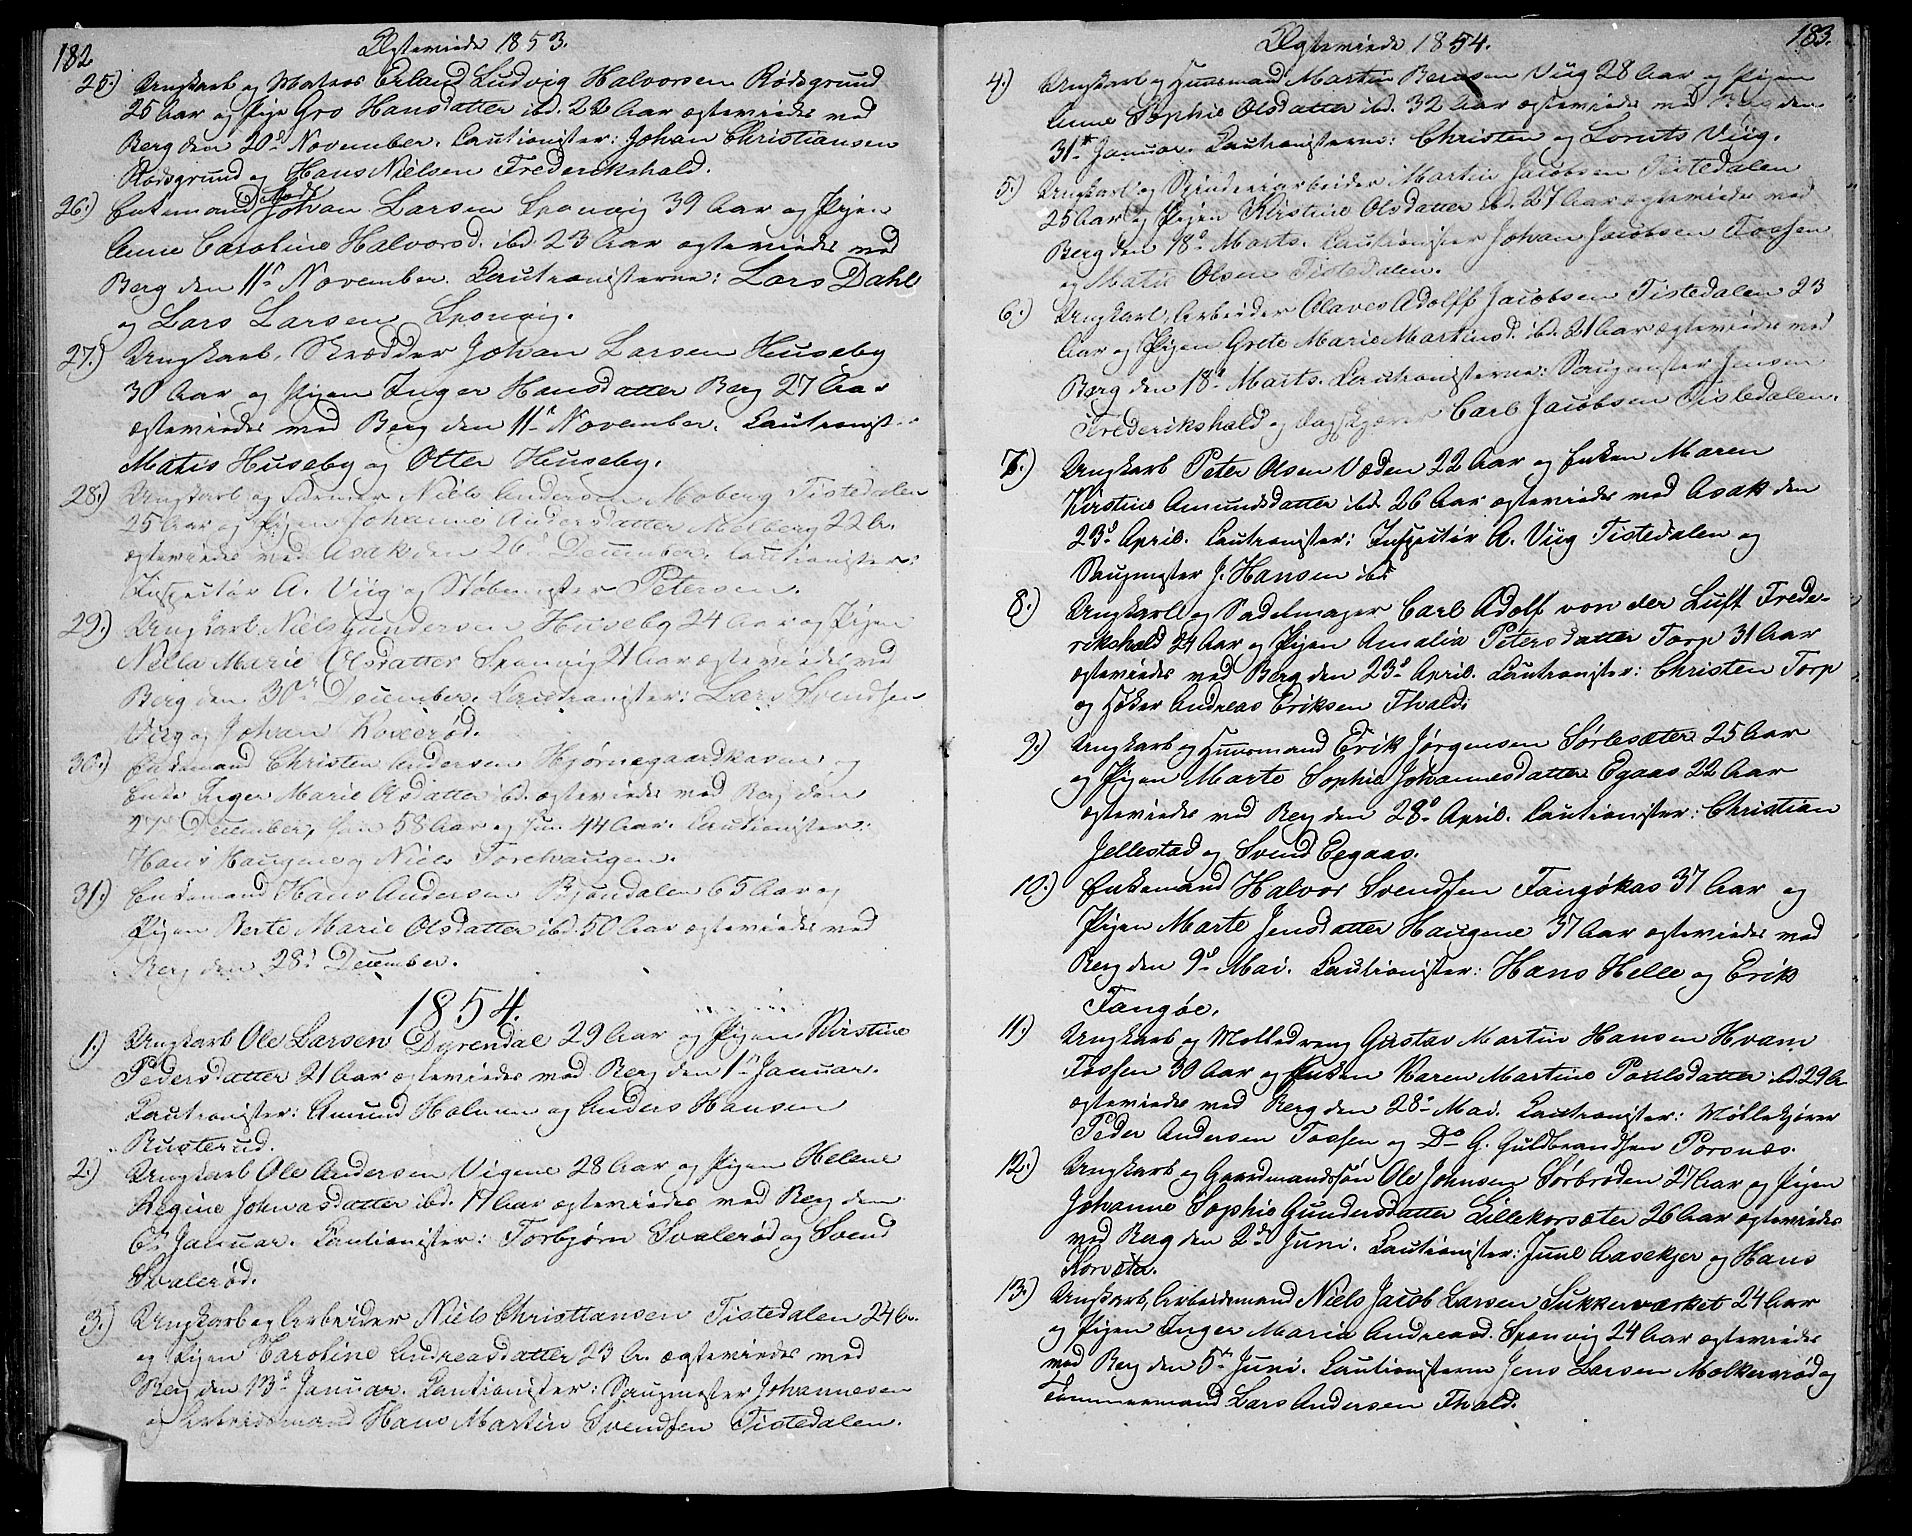 182
Ægteviede 1853.
25.) Ungkarl og Matros Erland Ludvig Halvorsen Rødsgrund
25 Aar og Pige Gro Hansdatter ibd. 22 Aar ægteviedes ved
Berg den 20de November. Cautionister: Johan Christiansen
Rødsgrund og Hans Nielsen Frederikshald.
26.) Enkemand Johan Larsen Sponvig 39 Aar og Pigen
Anne Caroline Halvorsd. ibd. 23 Aar ægteviedes ved
Berg den 11te November. Cautionisterne: Lars Dahl
og Lars Larsen Sponvig.
27.) Ungkarl, Skrædder Johan Larsen Huseby
30 Aar og Pigen Inger Hansdatter Berg 27 Aar
ægteviedes ved Berg den 11te November. Cautionist.
Matis Huseby og Otter Huseby.
28.) Ungkarl og Niels Andersen Moberg Tistedalen
25 Aar og Pigen Johanne Andersdatter Moberg 22 A.
ægteviedes ved Asak den 26d December. Cautionister:
Inspectør A. Viig og Støbemester Petersen.
29.) Ungkarl Niels Gundersen Huseby 24 Aar og Pigen
Nella Marie Olsdatter Sponvig 21 Aar ægteviedes ved
Berg den 30te December. Cautionister: Lars Svendsen
Viig og Johan
30.) Enkemand Christen Andersen Hjørnegaardkasene og
Enke Inger Marie Olsdatter ibd. ægteviedes ved Berg den
27de December, han 58 Aar og hun 44 Aar. Cautionister:
Hans Haugene og Niels Torehaugen.
31.) Enkemand Hans Andersen Bjøndalen 65 Aar og
Pigen Berte Marie Olsdatter ibd. 50 Aar ægteviedes ved
Berg den 28d December.
1854.
1.) Ungkarl Ole Larsen Dyrendal 29 Aar og Pigen Kirstine
Pedersdatter 21 Aar ægteviedes ved Berg den 1te Januar.
Cautionister: Amund Holmen og Anders Hansen
Rusterud.
2.) Ungkarl Ole Andersen Vigene 28 Aar og Pigen Helene
Regine Johnasdatter ibd. 17 Aar ægteviedes ved Berg den
6te Januar. Cautionister: Torbjørn Svalerød og Svend
Svalerød.
3.) Ungkarl og Arbeider Niels Christiansen Tistedalen 24 A.
og Pigen Caroline Andreasdatter 23 A. ægteviedes ved
Berg den 13d Januar. Cautionister: Saugmester Johannesen
og Arbeidsmand Hans Martin Svendsen Tistedalen.
183.
Ægteviede 1854.
4.) Ungkarl og Huusmand Martin Berntsen Viig 28 Aar og Pigen
Anne Sophie Olsdatter ibd. 32 Aar ægteviedes ved Berg den
31te Januar. Cautionisterne: Christen og Lorents Viig.
5.) Ungkarl og Spinderiarbeider Martin Jacobsen Tistedalen
25 Aar og Pigen Kirstine Olsdatter ibd. 27 Aar ægteviedes ved
Berg den 18d Marts. Cautionister Johan Jacobsen Fossen
og Matis Olsen Tistedalen.
6.) Ungkarl, Arbeider Olaves Adolff Jacobsen Tistedalen 23
Aar og Pigen Grete Marie Martinsd. ibd. 21 Aar ægteviedes ved
Berg den 18d Marts. Cautionisterne: Saugmester Jensen
Frederikshald og Carl Jacobsen Tistedalen.
7.) Ungkarl Peter Olsen Væden 22 Aar og Enken Maren
Kirstine Amundsdatter ibd. 26 Aar ægteviedes ved Asak den
23d April. Cautionister: Inspectør A. Viig Tistedalen og
Saugmester J. Hansen ibd.
8.) Ungkarl og Sadelmager Carl Adolf von der Luft Frede-
rikshald 24 Aar og Pigen Amalia Petersdatter Torp 31 Aar
ægteviedes ved Berg den 23d April. Cautionister: Christen Torp
og Høker Andreas Eriksen Fhald.
9.) Ungkarl og Huusmand Erik Jørgensen Sørlesæter 25 Aar
og Pigen Marte Sophie Johannesdatter Egaas 22 Aar
ægteviedes ved Berg den 28d April. Cautionister: Christian
Jellestad og Svend Eegaas.
10.) Enkemand Halvor Svendsen Fangøkas 37 Aar og
Pigen Marte Jensdatter Haugene 37 Aar ægteviedes ved
Berg den 9d Mai. Cautionister: Hans Helle og Erik
Fangøe.
11.) Ungkarl og Mølledreng Gustav Martin Hansen Hvam
Fossen 30 Aar og Enken Karen Martine Poulsdatter ibd. 29 A.
ægteviedes ved Berg den 28d Mai. Cautionister: Møllekjører
Peder Andersen Fossen og Do G. Guldbrandsen Porsnæs.
12.) Ungkarl og Gaardmandssøn Ole Johnsen Sørbrøden 27 Aar og Pigen
Johanne Sophie Gundersdatter Lillekorsæter 26 Aar ægteviedes
ved Berg den 2den Juni. Cautionister: Juul Aasekjer og Hans
Korsæter.
13.) Ungkarl, Arbeidsmand Niels Jacob Larsen Sukkerværket 24 Aar
og Pigen Inger Maria Andreasd. Sponvig 24 Aar ægteviedes
ved Berg den 5te Juni. Cautionisterne Jens Larsen Molkerød og
Tømmermand Lars Andersen Fhald.